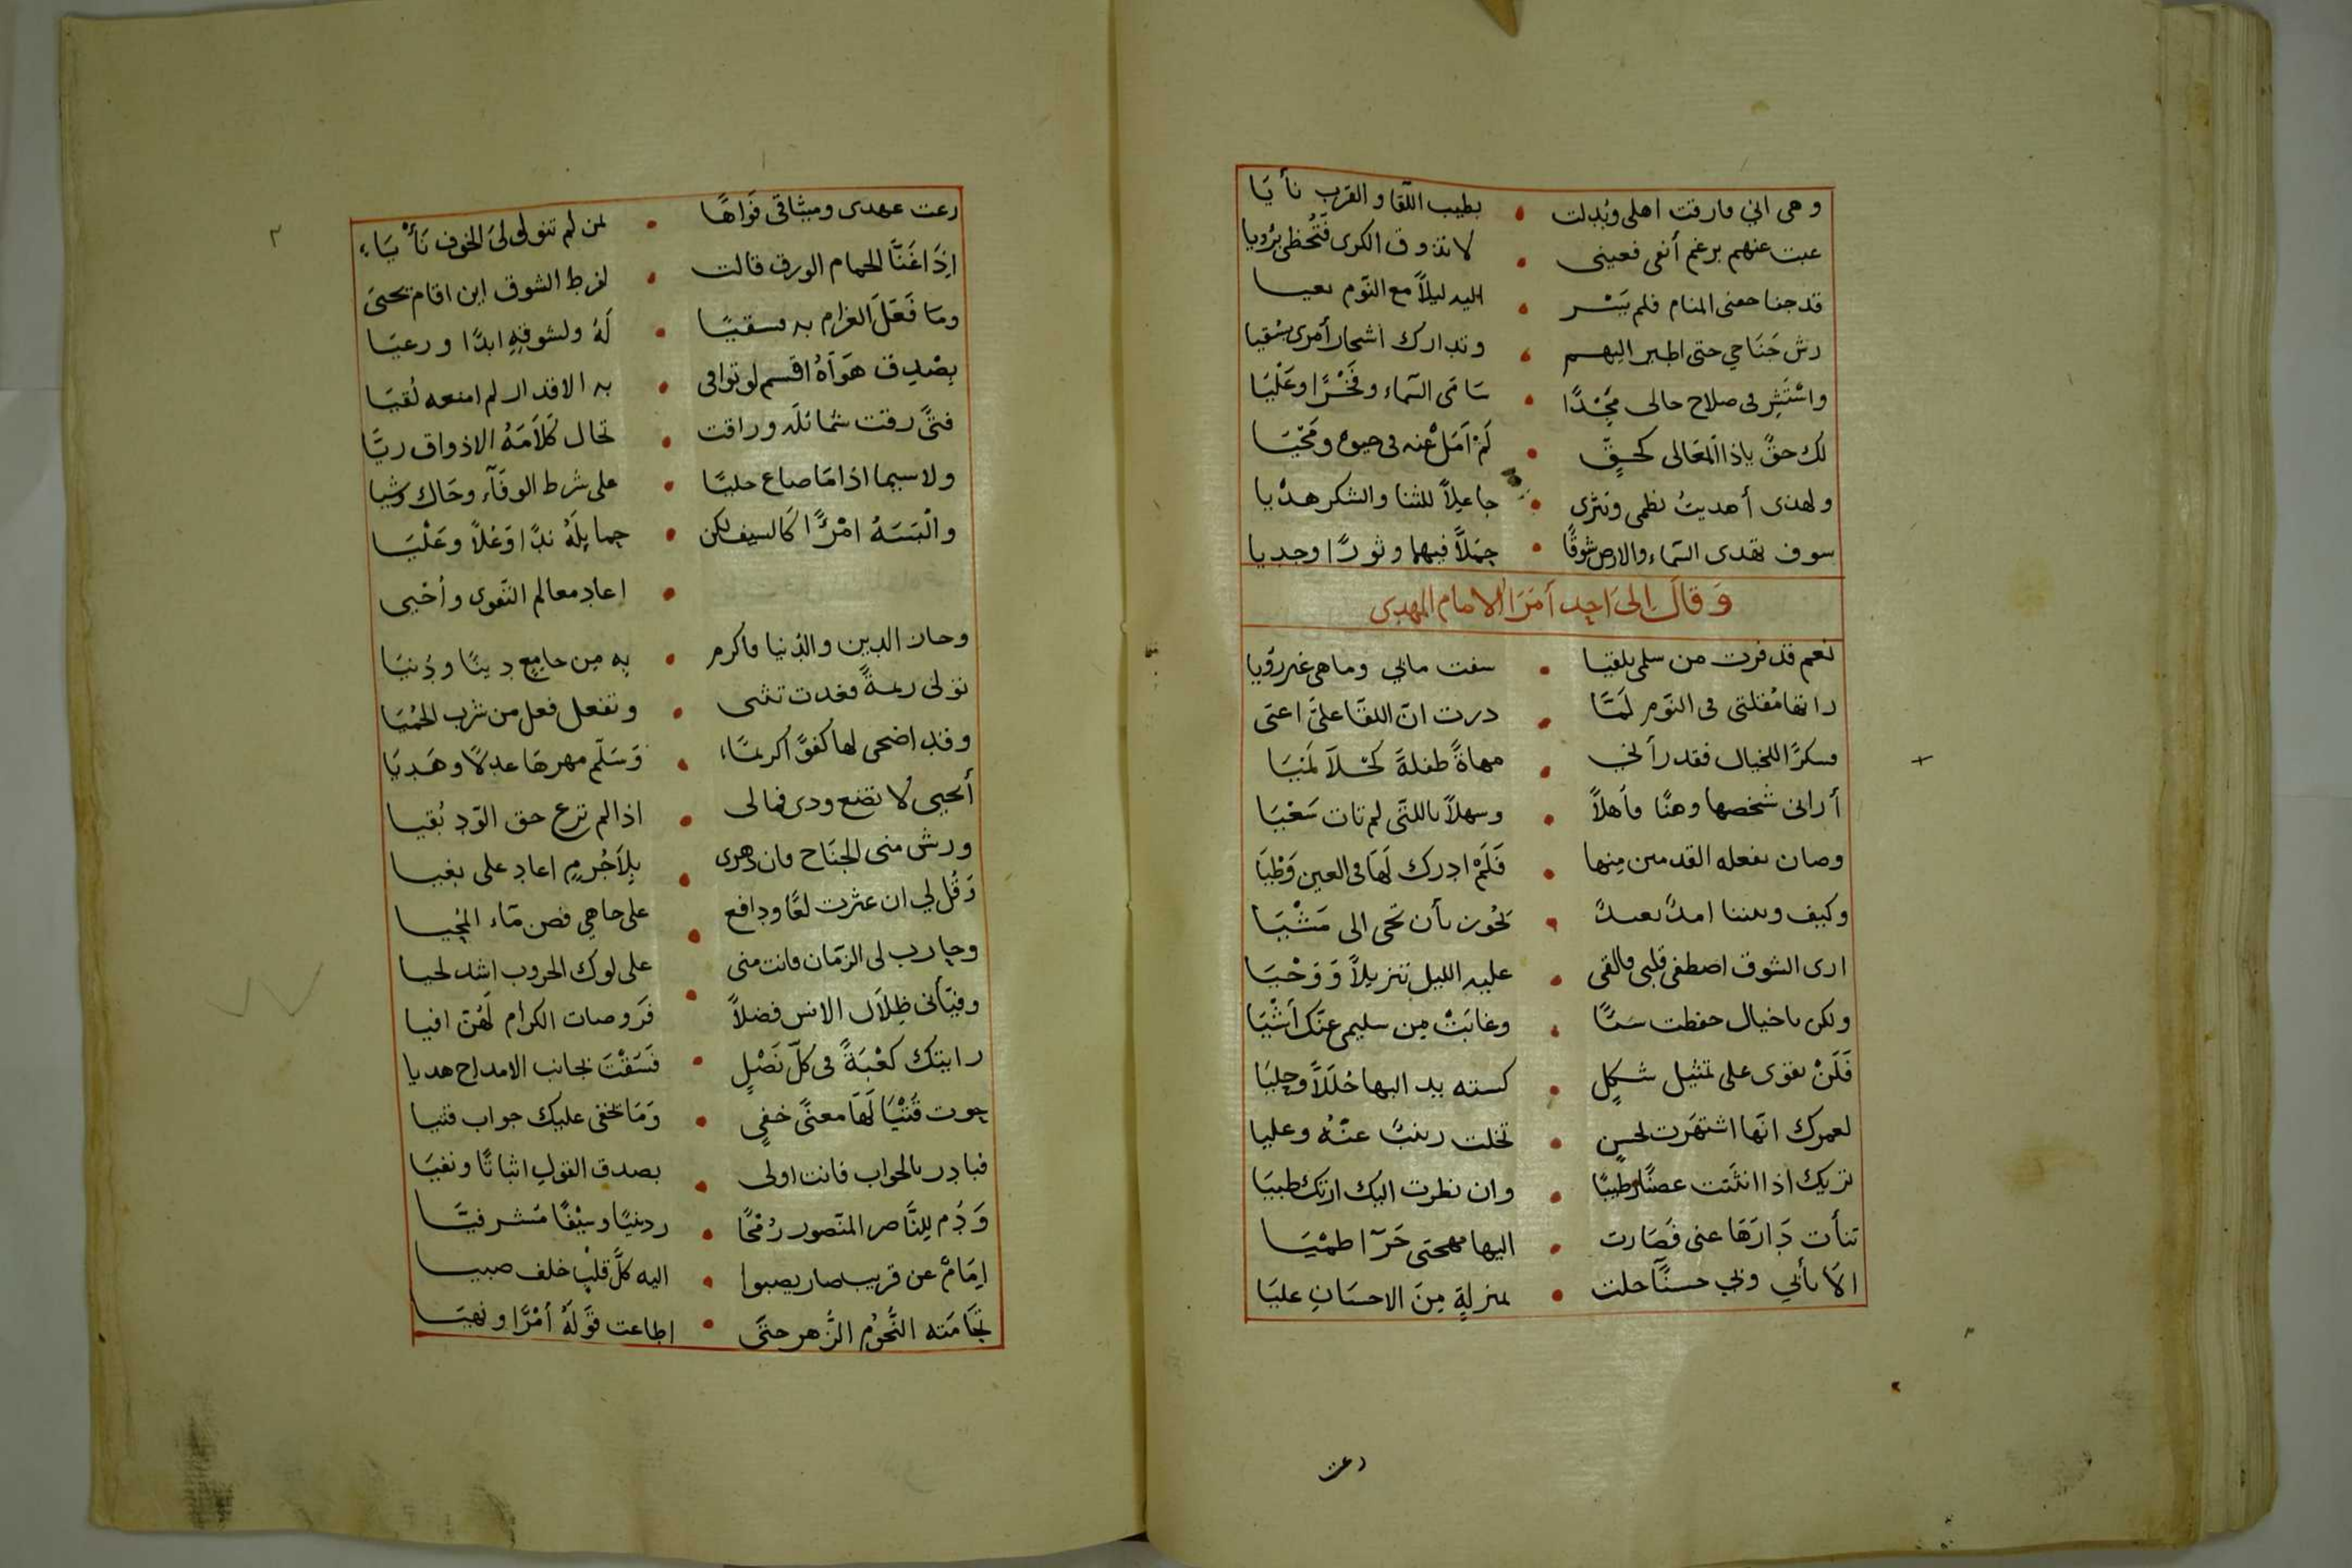 وهى انى فارقت اهلى وبُدلت • بطيب اللّقا والقرب نأيَا
غبت عنهم برغم أنفى فعينى • لا تذوق الكرى فَتُحظى برُؤيا
قد جفا جفنى المنام فلم يَسْر • اليه ليلاً مع النّوم
رش جَنَاحي حتى اطير اليهم • وتدارك اشجار أمرى بسُقيا
واسْتَثِر فى صلاح حالى مَجْدًا • سَامَى السَّماء وفَخْرًا وعَلْيَا
لك حقّ ياذا المَعَالى كحقٍّ • لَمْ اَمَلْ عنه فى حيوة ومَحْيَا
ولهذى أهديتُ نظمى ونثرى • جاعِلاً للثنا والشكر هدْيا
سوف تهدى السّماء والارض شوقًا • حمَلاً فيهما وثورًا وجديا
وَقالَ إلىَ احدِ أمَرَاُ الامام المهدى
نعم قد فزت من سلمى بلقيا • شفت مابى وما هى غير رؤيا
راتها مُقلتى فى النّوم لَمّا • درت انّ اللقَا علىَّ اعيَى
فشكرًا للخيال فقد رأنى • مهاةً طفلةً كَحْلآ لَميَا
أرانى شخصها وهنًا فاهلاً • وسهلاً باللتَى لم تات سَعْيَا
وصان بفعله القدمين منها • فَلَمْ ادرك لَهَا فى العين وَطْيَا
وكيف وبيننا امدٌ بعيدٌ • تحُوز بأن تحى الى مَشْيَا
ارى الشوق اصطفى قلبى فالقى • عليه الليل تنزيلاً وَوَحْيَا
ولكن ياخيال حفظت شيًّا • وغابَتْ مِن سليمى عنك أشْيَا
فَلَنْ تقوى على تمثيل شكلٍ • كسته يد البها حُلَلاً وحليَا
لعمرك انّها اشتهَرت لحسنٍ • تخلت زينبٌ عنْهُ وعليا
تريك اذا انثَنت غصنًا رطيبًا • وان نظرت اليك ارتك ظبيَا
تنأت دَارَهَا عنى فَصَارت • اليها مهجتى حَرّآ ظمْيَا
الاَ بأبى وبى حسنًا حلت • بمنزلةٍ مِنَ الاحسَانِ عليَا
رعت
رعت عهدى وميثاقى فَوَاهًا • لمن لم تنو لولىَ الخوف نَأْيَاءِ
اِذَا غَنّا الحمام الورق قالت • لفرط الشوق اين اقام يحيَى
ومَا فَعَلَ الغرام به فسقيًا • لَهُ ولشوقِهِ ابدًا ورعيَا
بِصْدِق هَوَاهُ اقسم لو توافى • به الاقدار لم امنعه لُقيَا
فتًى رقت شمائله وراقت • تخال كَلاَمَهُ الاذواق ريًّا
ولاسيما اذا مَا صاغ حليًا • على شرط الوفَآء وحَاك وَشيا
والْبَسَهُ امْرًا كَالسيف لكن • حمايلَهُ ندًا وَعُلاً وعَلْيَا
• اعادِ معالم التّقوى وأحْيى
وحاز الدين والدُنيا فاكرم • بِه مِن جامِعٍ دِينًا ودُنيَا
تولى ريمةً فغدت تثنى • وتفعل فعل من شرب الحُميَا
وقدِ اضحى لها كُفوًّا كريمًا • وَسَلّم مهرهَا عدلاً وهَديَا
أيحيى لا تضع ودى فمالى • اذا لم ترع حق الوّد بُقيا
ورش منى الجنَاح فان دهرى • بِلاَجُرمٍ اعاد على بغيا
وَقُل لي ان عثرت لعًا ودافع • على جاهي فصن مَّاء المُحيا
وحارب لى الزّمان فانت منى • على لوك الحروب اشد لحيا
وفيّأنى ظِلاَل الانس فضلاً • فَروضات الكرام لَهُنّ افيا
رايتك كَعْبَةً فى كلّ فَضْلٍ • فَسَقْتَ بجانب الامداح هديا
حوت فَتْيَا لَهَا معنًى خفىٍ • وَمَا تخفى عليك جواب فتيا
فبادِر بالجواب فانت اولى • بصدق القول اثباتًا ونفيَا
وَدُم لِلنَّاصر المنصور رُمْحًا • ردنيًا وسَيْفًا مَشرفيَّا
اِمَامٌ عن قريب صار يصبوا • اليه كلّ قلبٍ خلف صبيا
تخَامَته النُّجُوُم الزُّهر حتَى • اطاعت قَولَهُ أمْرًا ونهيَا